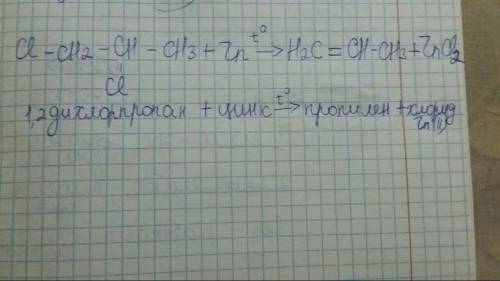 Cl - CH2 - CH - CH3 + Zn t° → H2C = CH-CH3 + ZnCl2
Cl
1,2дихлорпропан + цинк t° → пропилен + хлорид
Zn (II)